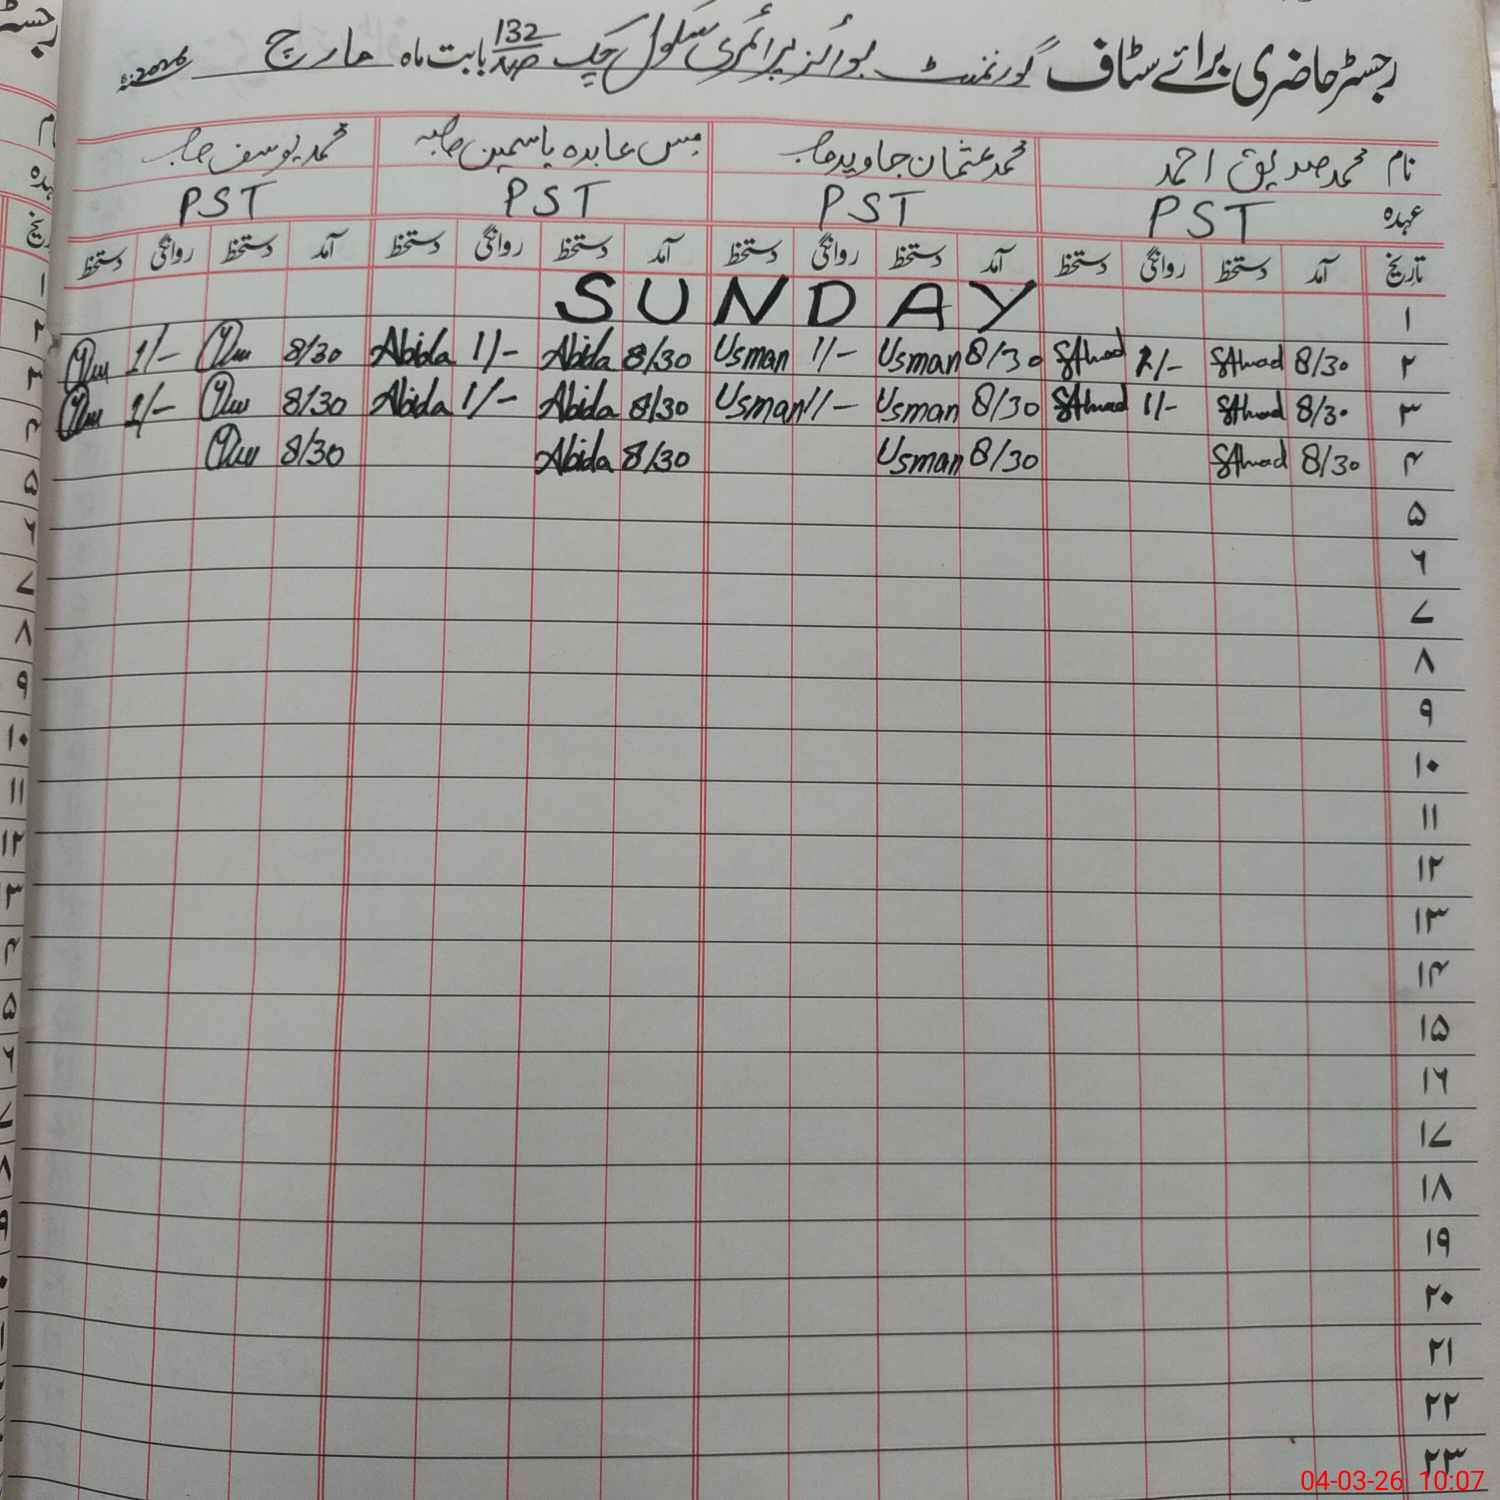 رجسٹر حاضری برائے سٹاف گورنمنٹ بوائز پرائمری سکول چک 132 بابت ماہ مارچ 2026ء
نام محمد صدیق احمد محمد عثمان جاوید صاحب مس عابدہ یاسمین صاحبہ محمد یوسف صاحب
عہدہ PST PST PST PST
تاریخ آمد دستخط روانگی دستخط آمد دستخط روانگی دستخط آمد دستخط روانگی دستخط آمد دستخط روانگی دستخط
۱ SUNDAY
۲ 8/30 1/- 8/30 Usman 1/- Usman 8/30 Abida 1/- Abida 8/30 1/-
۳ 8/30 1/- 8/30 Usman 1/- Usman 8/30 Abida 1/- Abida 8/30 1/-
۴ 8/30 8/30 Usman 8/30 Abida 8/30
۵
۶
۷
۸
۹
۱۰
۱۱
۱۲
۱۳
۱۴
۱۵
۱۶
۱۷
۱۸
۱۹
۲۰
۲۱
۲۲
۲۳
04-03-26 10:07